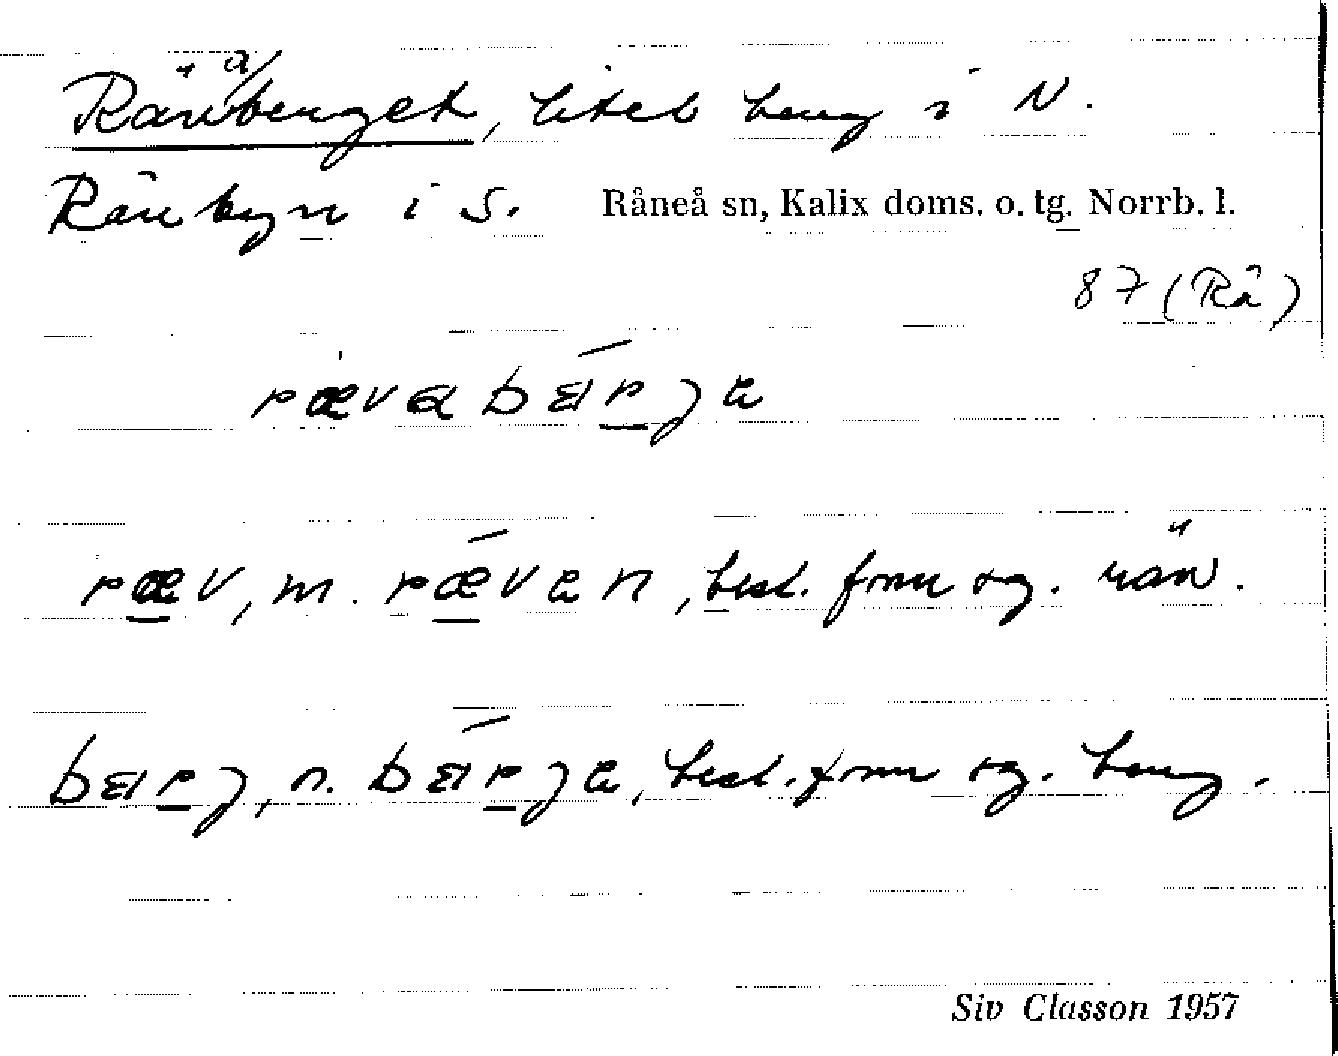 Rävaberget, litet berg i N.
Rånbyn i S. Råneå sn, Kalix doms. o. tg. Norrb. l.
87 (Rå)
rævabærja
ræv, m. rævan, best. form sg. räv.
bærj, n. bærja, best. form sg. berg.
Siv Classon 1957